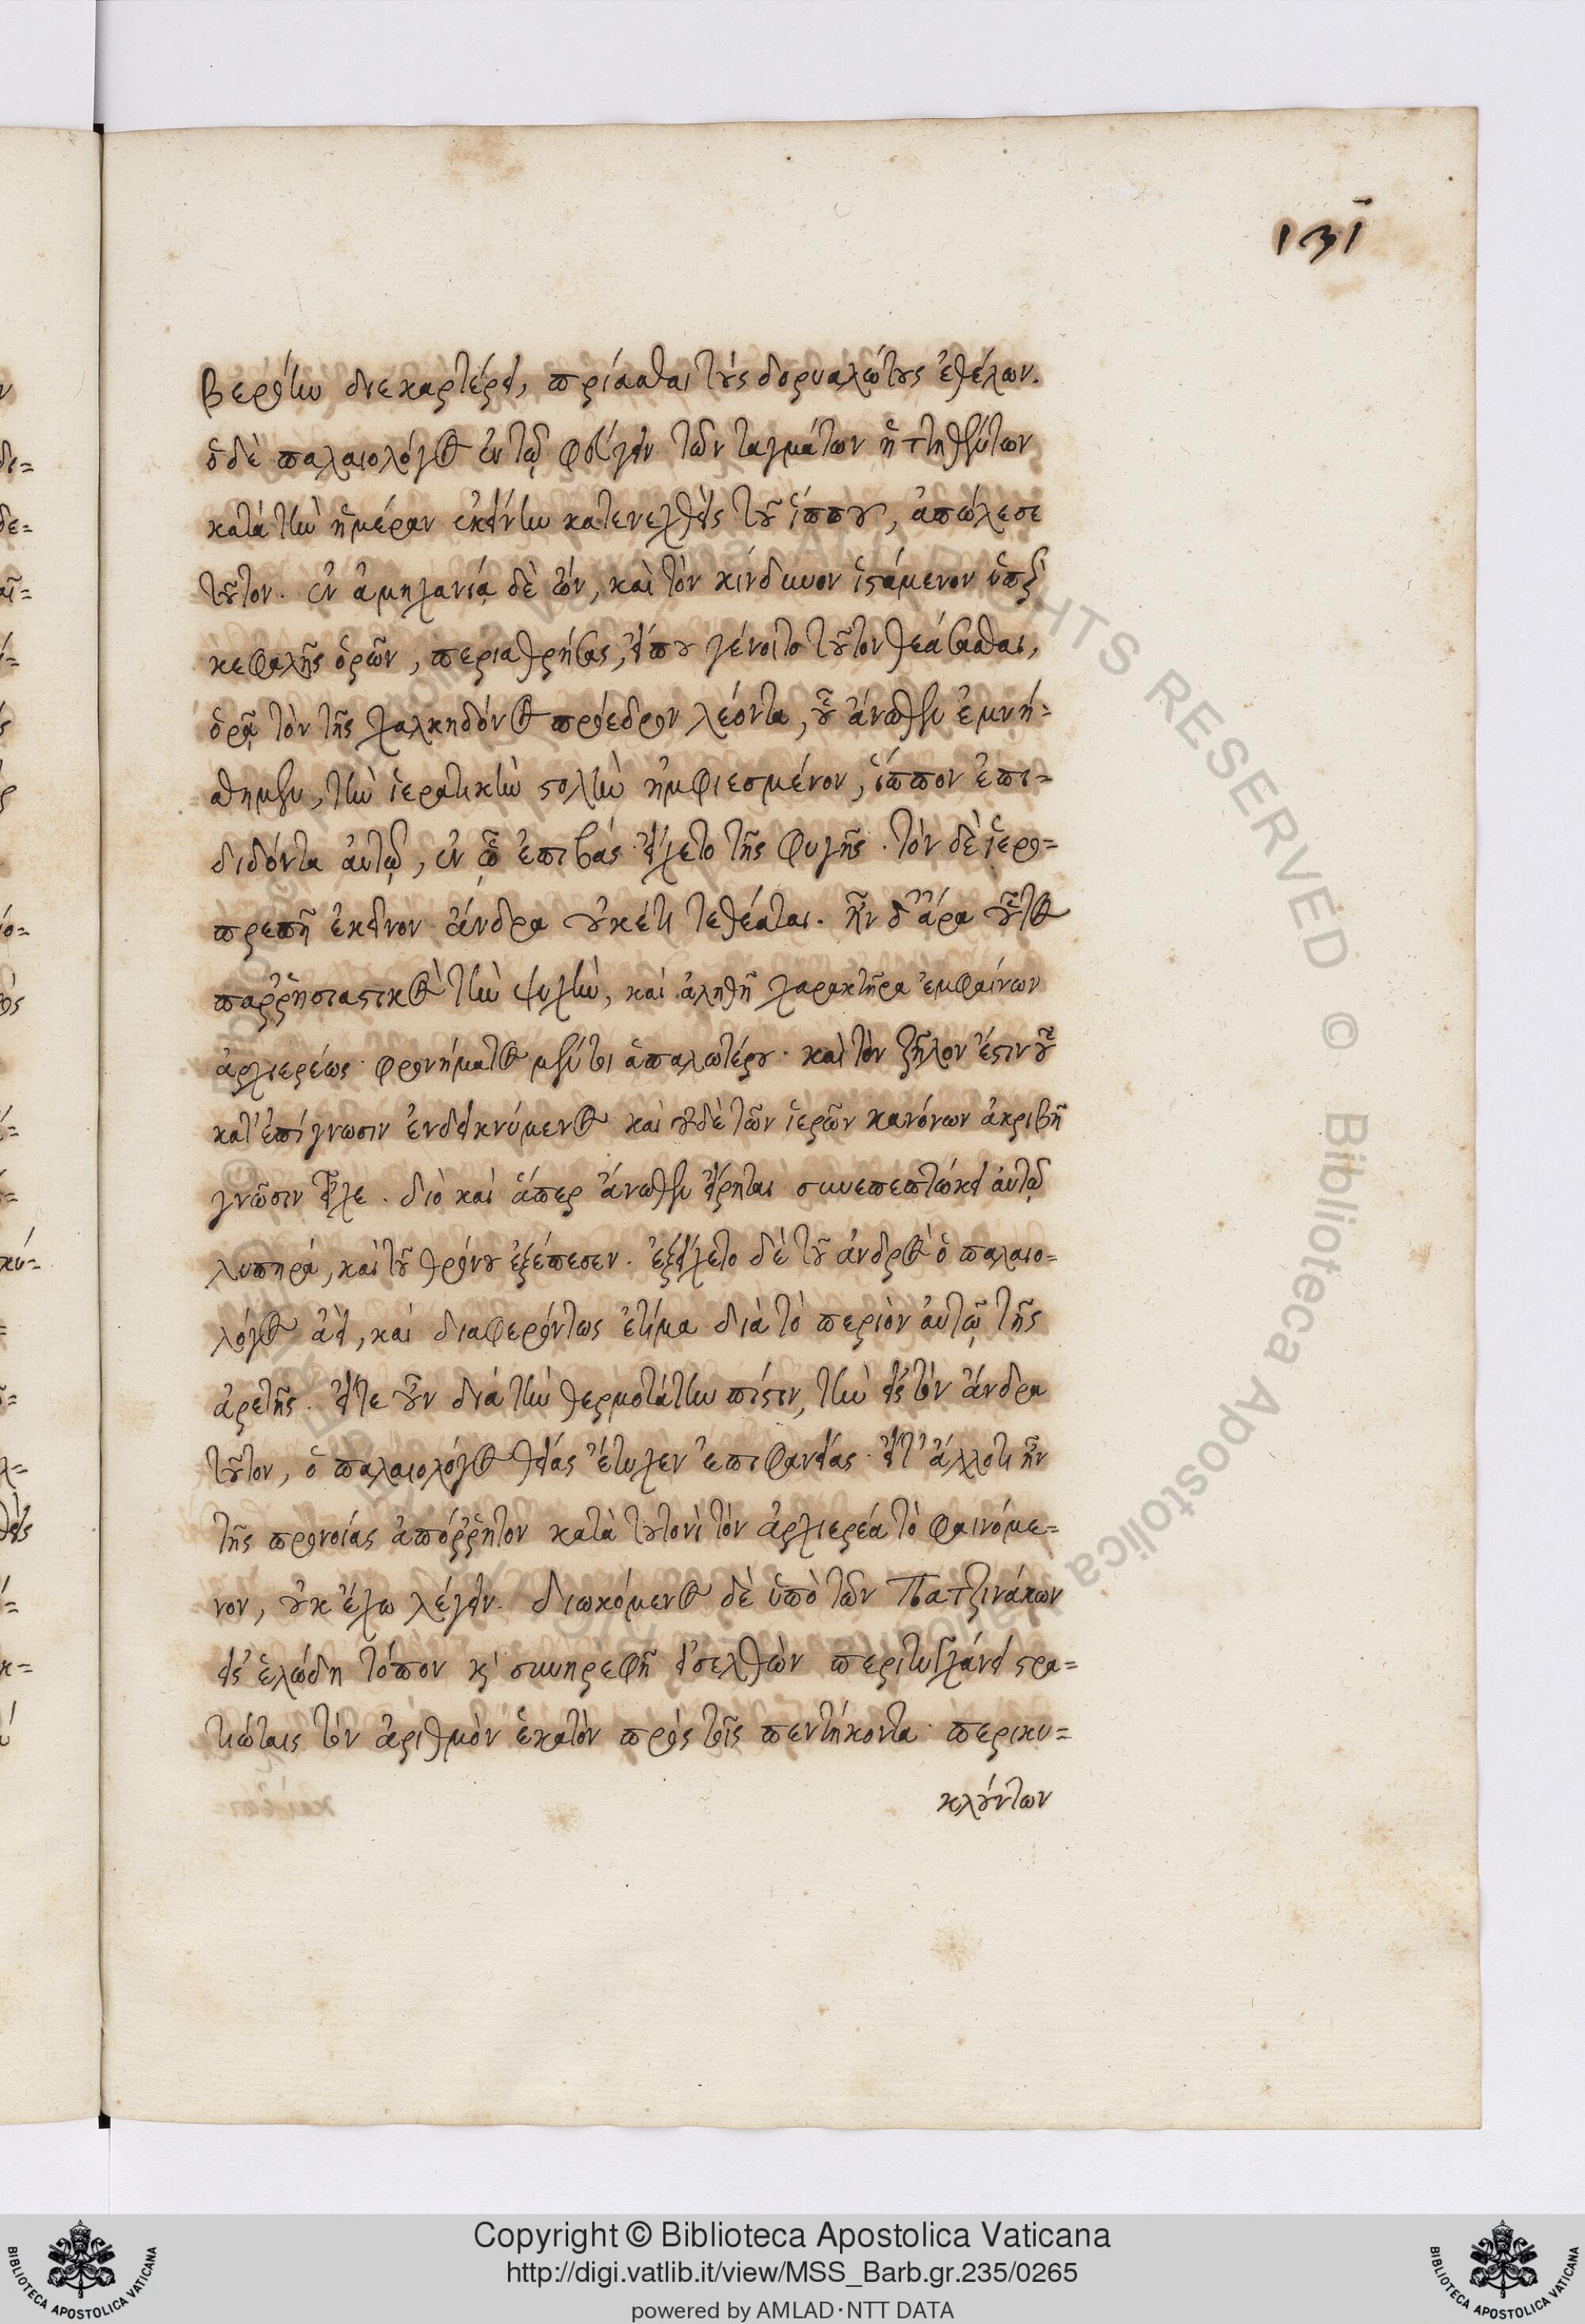 131
Βερόην διεκαρτέρει, πρίασθαι τοὺς δορυαλώτους ἐθέλων.
ὁ δὲ παλαιολόγος ἐν τῷ φεύγειν τῶν ταγμάτων ἡττηθέντων
κατὰ τὴν ἡμέραν ἐκείνην κατενεχθεὶς τοῦ ἵππου, ἀπώλεσε
τοῦτον. ἐν ἀμηχανίᾳ δὲ ὤν, καὶ τὸν κίνδυνον ἱστάμενον ὑπὲρ
κεφαλῆς ὁρῶν, περιαθρήσας, εἴπου γένοιτο τοῦτον θεάσασθαι,
ὁρᾷ τὸν τῆς χαλκηδόνος πρόεδρον λέοντα, οὗ ἄνωθεν ἐμνή=
σθημεν, τὴν ἱερατικὴν στολὴν ἠμφιεσμένον, ἵππον ἐπι=
διδόντα αὐτῷ, ἐν ᾧ ἐπιβὰς εἴχετο τῆς φυγῆς. τὸν δὲ ἱερο=
πρεπῆ ἐκεῖνον ἄνδρα οὐκέτι τεθέαται. ἦν δ' ἄρα οὗτος
παῤῥησιαστικὸς τὴν ψυχὴν, καὶ ἀληθῆ χαρακτῆρα ἐμφαίνων
ἀρχιερέως· φρονήματος μέντοι ἁπαλωτέρου· καὶ τὸν ζῆλον ἔστιν οὗ
κατ' ἐπίγνωσιν ἐνδεικνύμενος καὶ οὐδὲ τῶν ἱερῶν κανόνων ἀκριβῆ
γνῶσιν εἶχε. διὸ καὶ ἅπερ ἄνωθεν εἴρηται συνεπεπτώκει αὐτῷ
λυπηρά, καὶ τοῦ θρόνου ἐξέπεσεν. ἐξείχετο δὲ τοῦ ἀνδρὸς ὁ παλαιο=
λόγος ἀεὶ, καὶ διαφερόντως ἐτίμα διὰ τὸ περιὸν αὐτῷ τῆς
ἀρετῆς. εἴτε οὖν διὰ τὴν θερμοτάτην πίστιν, τὴν εἰς τὸν ἄνδρα
τοῦτον, ὁ παλαιολόγος θείας ἔτυχεν ἐπιφανείας· εἴτ' ἄλλό τι ἦν
τῆς προνοίας ἀπόῤῥητον κατὰ τουτονὶ τὸν ἀρχιερέα τὸ φαινόμε=
νον, οὐκ ἔχω λέγειν. διωκόμενος δὲ ὑπὸ τῶν Πατζινάκων
εἰς ἑλώδη τόπον κ' συνηρεφῆ εἰσελθὼν περιτυγχάνει στρα=
τιώταις τὸν ἀριθμὸν ἑκατὸν πρὸς τοῖς πεντήκοντα· περικυ=
κλούντων
Copyright © Biblioteca Apostolica Vaticana
http://digi.vatlib.it/view/MSS_Barb.gr.235/0265
powered by AMLAD·NTT DATA